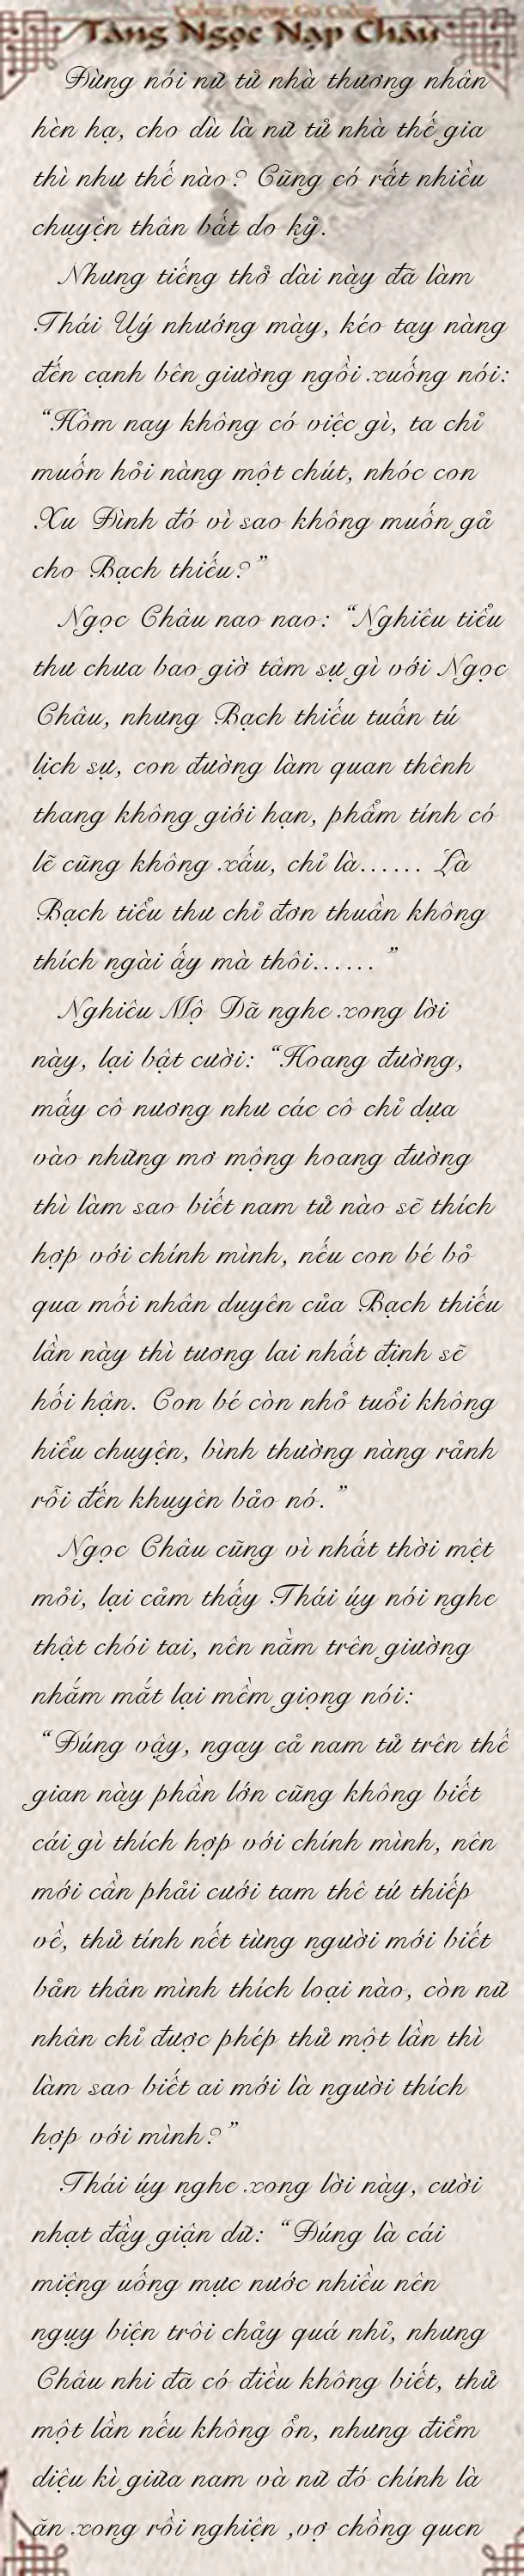 Tàng Ngọc Nạp Châu
Đừng nói nữ tử nhà thương nhân
hèn hạ, cho dù là nữ tử nhà thế gia
thì như thế nào? Cũng có rất nhiều
chuyện thân bất do kỷ.
Nhưng tiếng thở dài này đã làm
Thái Uý nhướng mày, kéo tay nàng
đến cạnh bên giường ngồi xuống nói:
“Hôm nay không có việc gì, ta chỉ
muốn hỏi nàng một chút, nhóc con
Xu Đình đó vì sao không muốn gả
cho Bạch thiếu?”
Ngọc Châu nao nao: “Nghiêu tiểu
thư chưa bao giờ tâm sự gì với Ngọc
Châu, nhưng Bạch thiếu tuấn tú
lịch sự, con đường làm quan thênh
thang không giới hạn, phẩm tính có
lẽ cũng không xấu, chỉ là…… Là
Bạch tiểu thư chỉ đơn thuần không
thích ngài ấy mà thôi…… ”
Nghiêu Mộ Dã nghe xong lời
này, lại bật cười: “Hoang đường,
mấy cô nương như các cô chỉ dựa
vào những mơ mộng hoang đường
thì làm sao biết nam tử nào sẽ thích
hợp với chính mình, nếu con bé bỏ
qua mối nhân duyên của Bạch thiếu
lần này thì tương lai nhất định sẽ
hối hận. Con bé còn nhỏ tuổi không
hiểu chuyện, bình thường nàng rảnh
rỗi đến khuyên bảo nó. ”
Ngọc Châu cũng vì nhất thời mệt
mỏi, lại cảm thấy Thái úy nói nghe
thật chói tai, nên nằm trên giường
nhắm mắt lại mềm giọng nói:
“Đúng vậy, ngay cả nam tử trên thế
gian này phần lớn cũng không biết
cái gì thích hợp với chính mình, nên
mới cần phải cưới tam thê tứ thiếp
về, thử tính nết từng người mới biết
bản thân mình thích loại nào, còn nữ
nhân chỉ được phép thử một lần thì
làm sao biết ai mới là người thích
hợp với mình?”
Thái úy nghe xong lời này, cười
nhạt đầy giận dữ: “Đúng là cái
miệng uống mực nước nhiều nên
ngụy biện trôi chảy quá nhỉ, nhưng
Châu nhi đã có điều không biết, thử
một lần nếu không ổn, nhưng điểm
diệu kì giữa nam và nữ đó chính là
ăn xong rồi nghiện ,vợ chồng quen